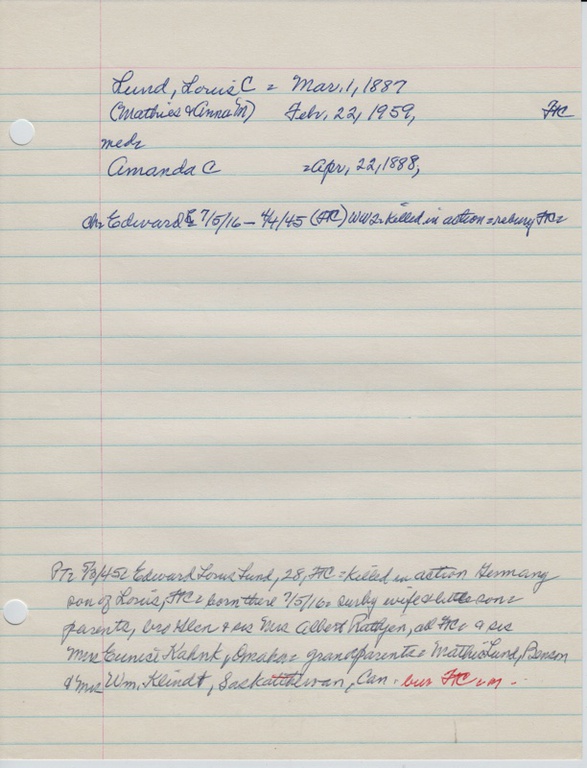 Lund, Louis C = Mar. 1, 1887
(Mathies & Anna M) Febr. 22, 1959, FC
med=
Amanda C = Apr, 22, 1888,
ch= Edward = 7/5/16 - 4/4/45 (FC) WW2= Killed in action = rebury FC=
5/3/45= Edward Louis Lund, 28, FC = Killed in action Germany
son of Louis, FC = born there 7/5/16 = surby wife & little son=
parents, bro Glen & sis Mrs Albert Rathjen, all FC = a sis
Mrs Eunice Kahnk, Omaha = grandparents = Mathis Lund, Benson
& Mrs Wm. Kleindt, Saskatchewan, Can. bur FC